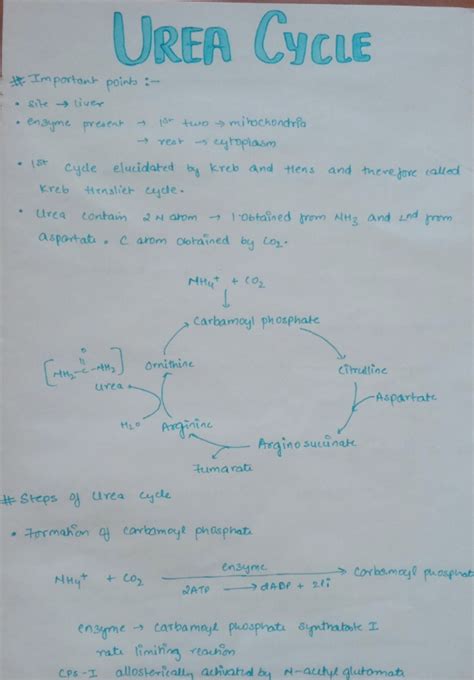 UREA CYCLE
# Important points :-
• site → liver
• enzyme present → 1st two → mitochondria
→ rest → cytoplasm
• 1st cycle elucidated by Kreb and Hens and therefore called
Kreb Hensliet cycle.
• Urea contain 2 N atom → 1 obtained from NH3 and 2nd from
aspartate. C atom obtained by CO2.
NH4+ + CO2
Carbamoyl phosphate
Citrulline
Aspartate
Arginosuccinate
Fumarate
Arginine
H2O
Urea
[NH2-C-NH2]
O
Ornithine
# Steps of Urea cycle
• Formation of carbamoyl phosphate
NH4+ + CO2 enzyme → Carbamoyl phosphate
2ATP → 2ADP + 2Pi
enzyme → carbamoyl phosphate synthatase I
rate limiting reaction
CPS-I allosterically activated by N-acetyl glutamate